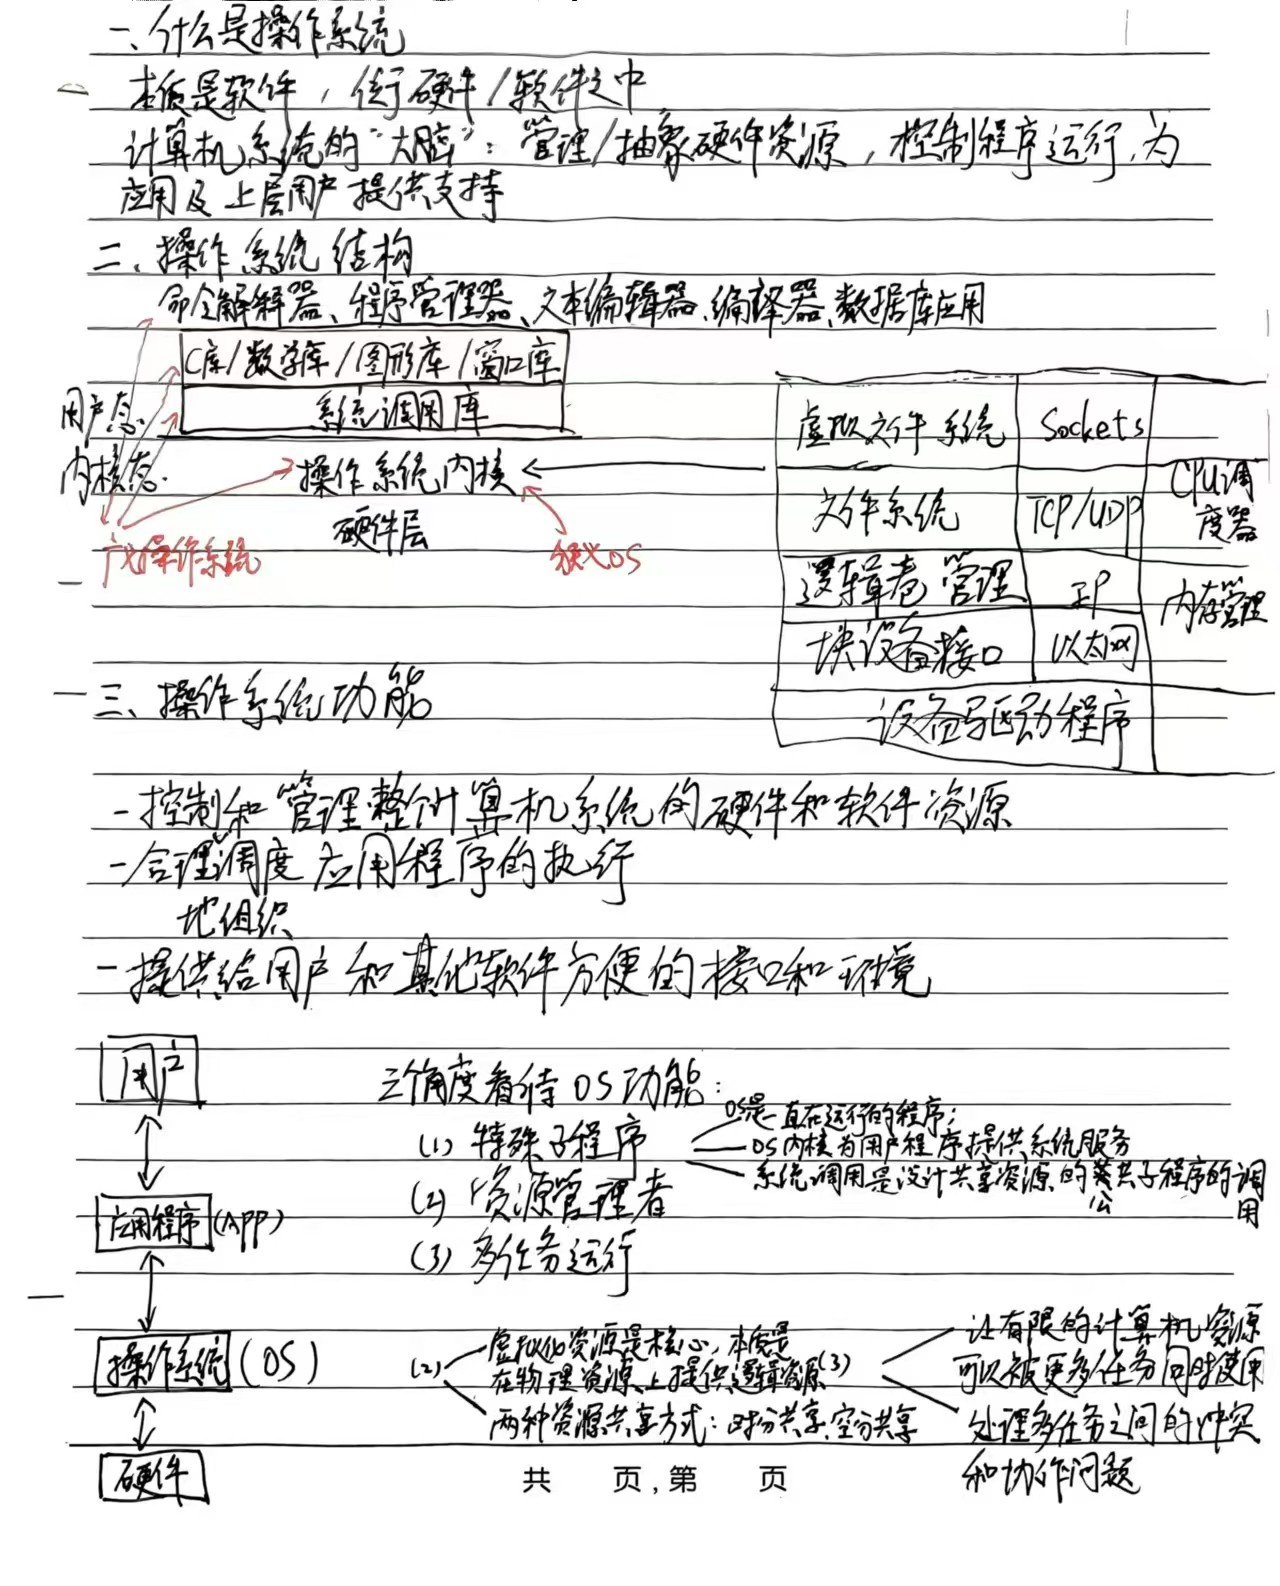 一、什么是操作系统
本质是软件，位于硬件/软件之中
计算机系统的“大脑”：管理/抽象硬件资源，控制程序运行，为
应用及上层用户提供支持
二、操作系统结构
命令解释器、程序管理器、文本编辑器、编译器、数据库应用
C库/数学库/图形库/窗口库
系统调用库
用户态
内核态
操作系统内核
硬件层
广义操作系统
狭义OS
虚拟文件系统 Sockets
文件系统 TCP/UDP
逻辑卷管理 IP
块设备接口 以太网
设备驱动程序
CPU调
度器
内存管理
三、操作系统功能
-控制和管理整个计算机系统的硬件和软件资源
-合理调度应用程序的执行
地组织
-提供给用户和其他软件方便的接口和环境
用户
应用程序(APP)
操作系统(OS)
硬件
三个角度看待OS功能：
(1) 特殊子程序
OS是一直在运行的程序；
OS内核为用户程序提供系统服务
系统调用是设计共享资源的公共子程序的调
用
(2) 资源管理者
(3) 多任务运行
(2) 虚拟化资源是核心，本质是
在物理资源上提供逻辑资源
两种资源共享方式：时分共享，空分共享
(3) 让有限的计算机资源
可以被更多任务同时使用
处理多任务之间的冲突
和协作问题
共 页，第 页